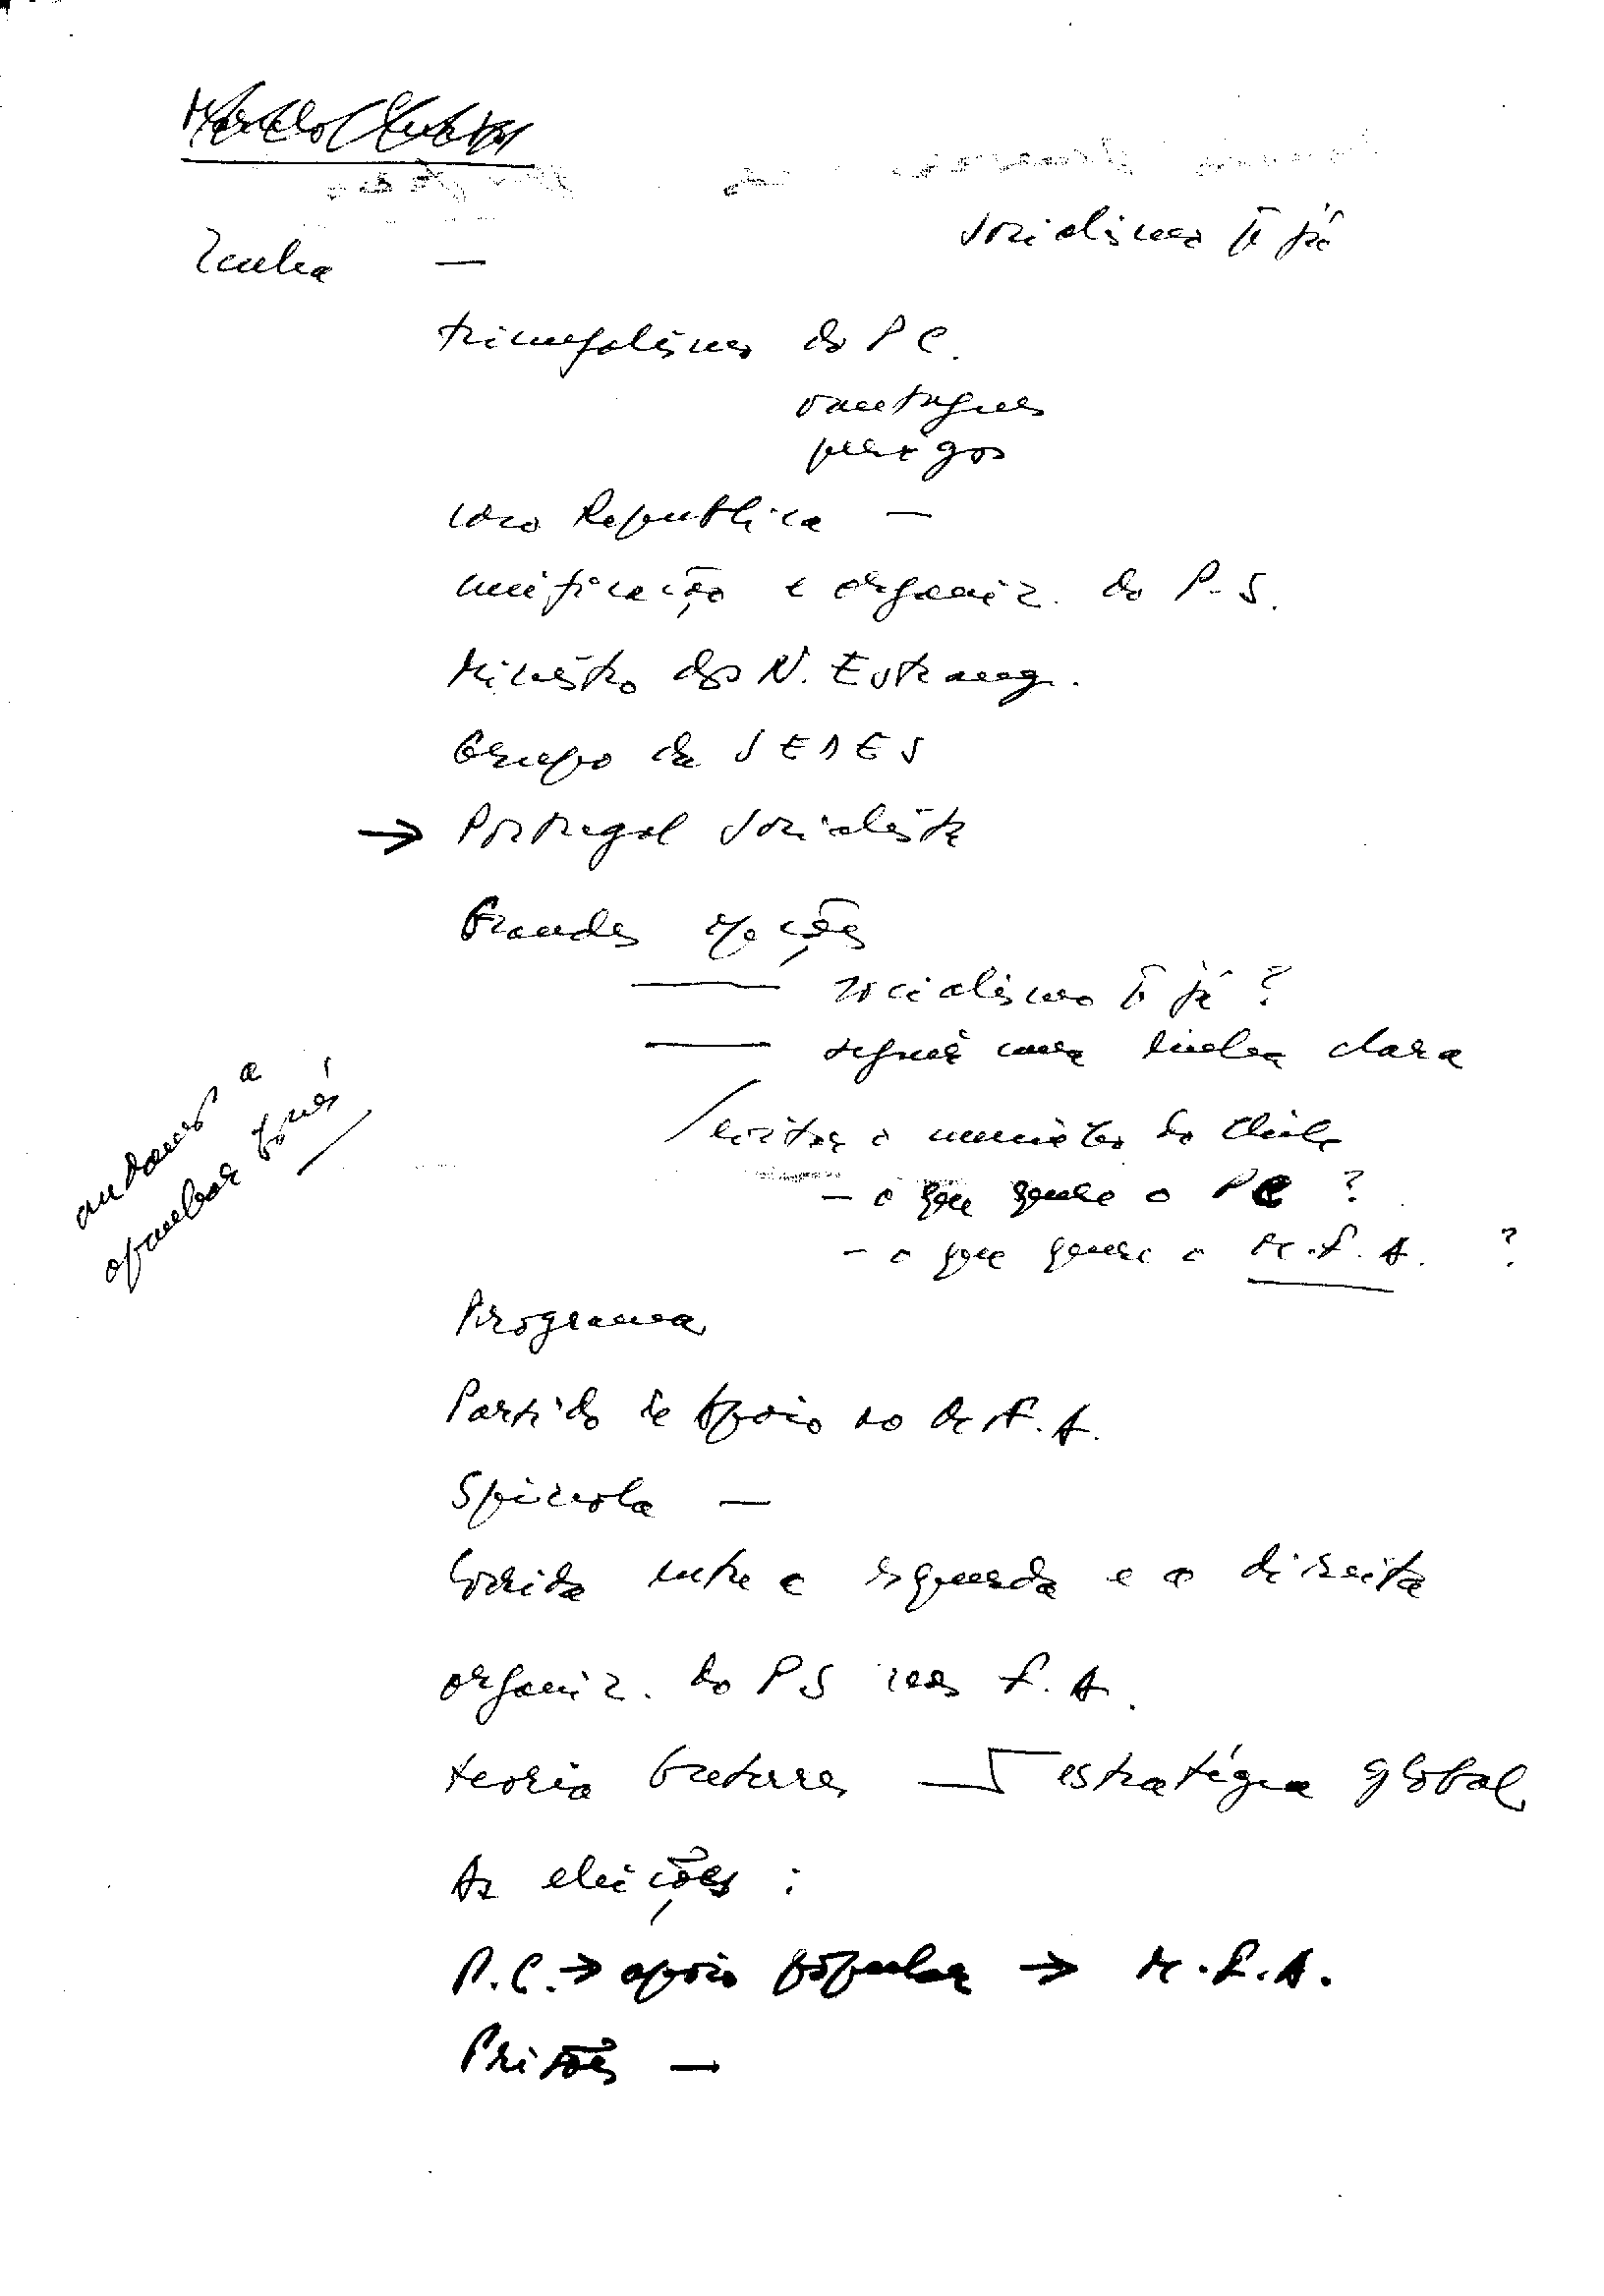 Zenha —
socialismo já
triunfalismo do P C.
vantagens
perigos
caso Republica —
unificação e organiz. do P. S.
Ministro dos N. Estrang.
Grupo da SEDES
→ Portugal Socialista
Grandes opções
— socialismo já ?
— seguir uma linha clara
evitar o do Chile
— o que quere o PC ?
— o que quere o M.F.A. ?
andamos a
apanhar
Programa
Partido de Apoio ao M.F.A.
Spinola —
Corrida entre a esquerda e a direita
organiz. do PS nas F. A.
teoria Guterres estratégia global
As eleições :
P.C. → apoio popular → M.F.A.
Prisões —